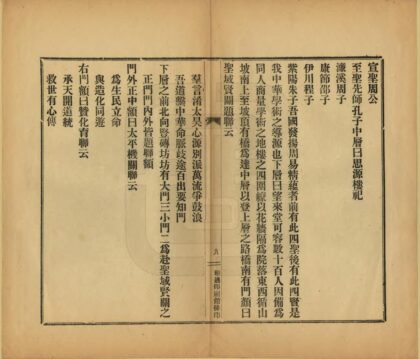 宣聖周公
至聖先師孔子中層曰思源樓祀
濂溪周子
康節邵子
伊川程子
紫陽朱子吾國發揚周易精蘊者前有此四聖後有此四賢是
我中華學術之導源也下層曰望來堂可容數十百人因備爲
同人商量學術之地樓之四圍繚以花牆隔爲院落東西循山
坡南上至坡頂有橋爲達中層以登上層之路橋南有門額曰
聖域賢關題聯云
羣言淆太昊心源別派萬流爭鼓浪
吾道繫中華命脈歧途百出要知門
下層之前北向竪磚坊坊有大門三小門二爲赴聖域賢關之
正門門內外皆題聯額
門外正中額曰太平機關聯云
爲生民立命
與造化同遊
右門額曰贊化育聯云
承天開道統
救世有心傳
九